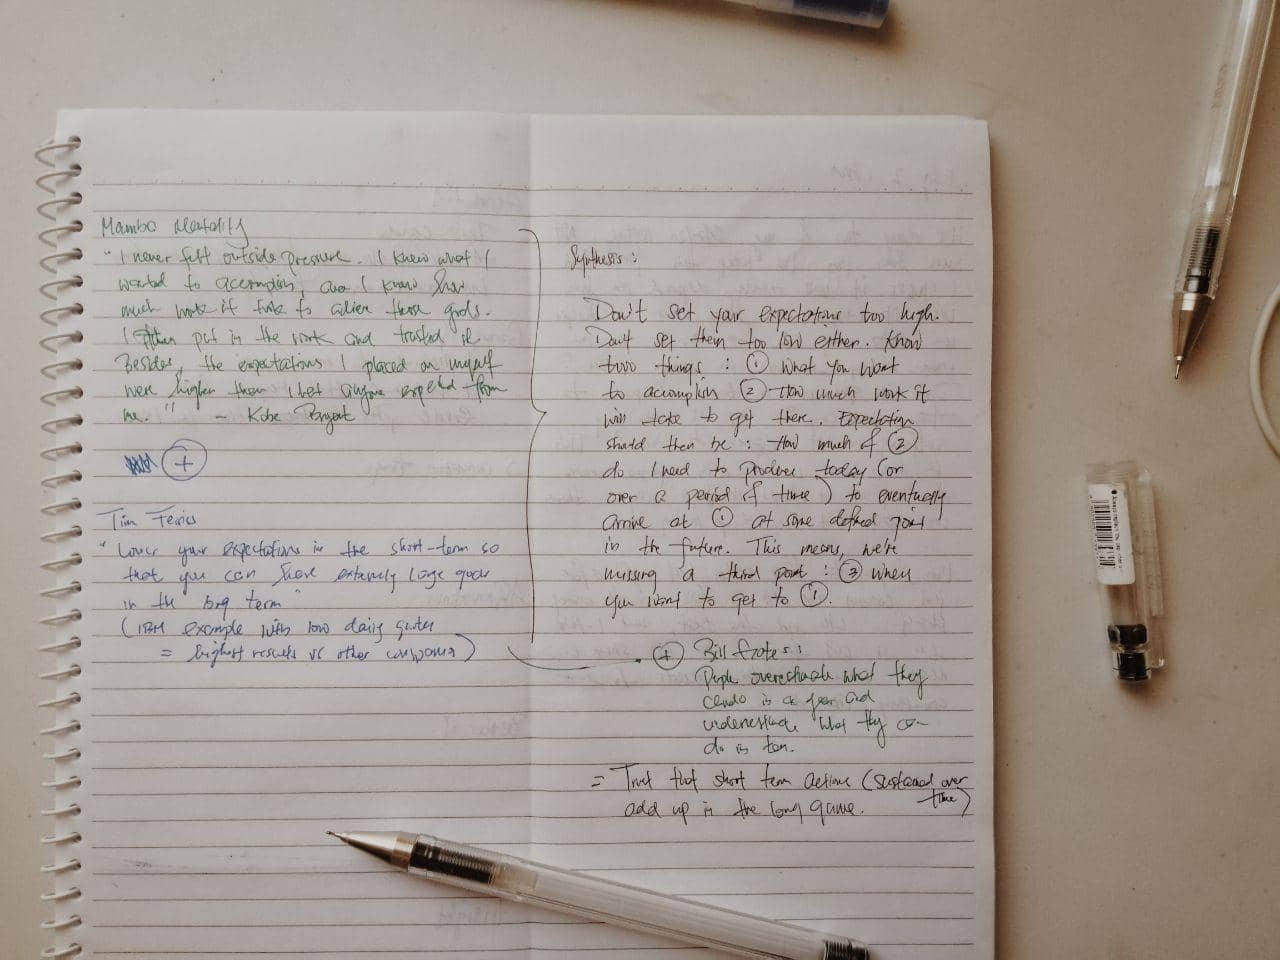 Mambo Mentality
"I never felt outside pressure. I knew what I
wanted to accomplish, and I knew how
much work it took to achieve those goals.
I then put in the work and trusted it.
Besides, the expectations I placed on myself
were higher than what anyone expected from
me." – Kobe Bryant
+
Tim Ferriss
"Lower your expectations in the short-term so
that you can have extremely large goals
in the long term"
(IBM example with low daily quotas
= highest results vs other companies)
Synthesis:
Don't set your expectations too high.
Don't set them too low either. Know
two things: ① What you want
to accomplish ② How much work it
will take to get there. Expectation
should then be: How much of ②
do I need to produce today (or
over a period of time) to eventually
arrive at ① at some defined point
in the future. This means, we're
missing a third point: ③ when
you want to get to ①.
+ Bill Gates:
People overestimate what they
can do in a year and
underestimate what they can
do in ten.
= Trust that short term actions (sustained over
time)
add up in the long game.